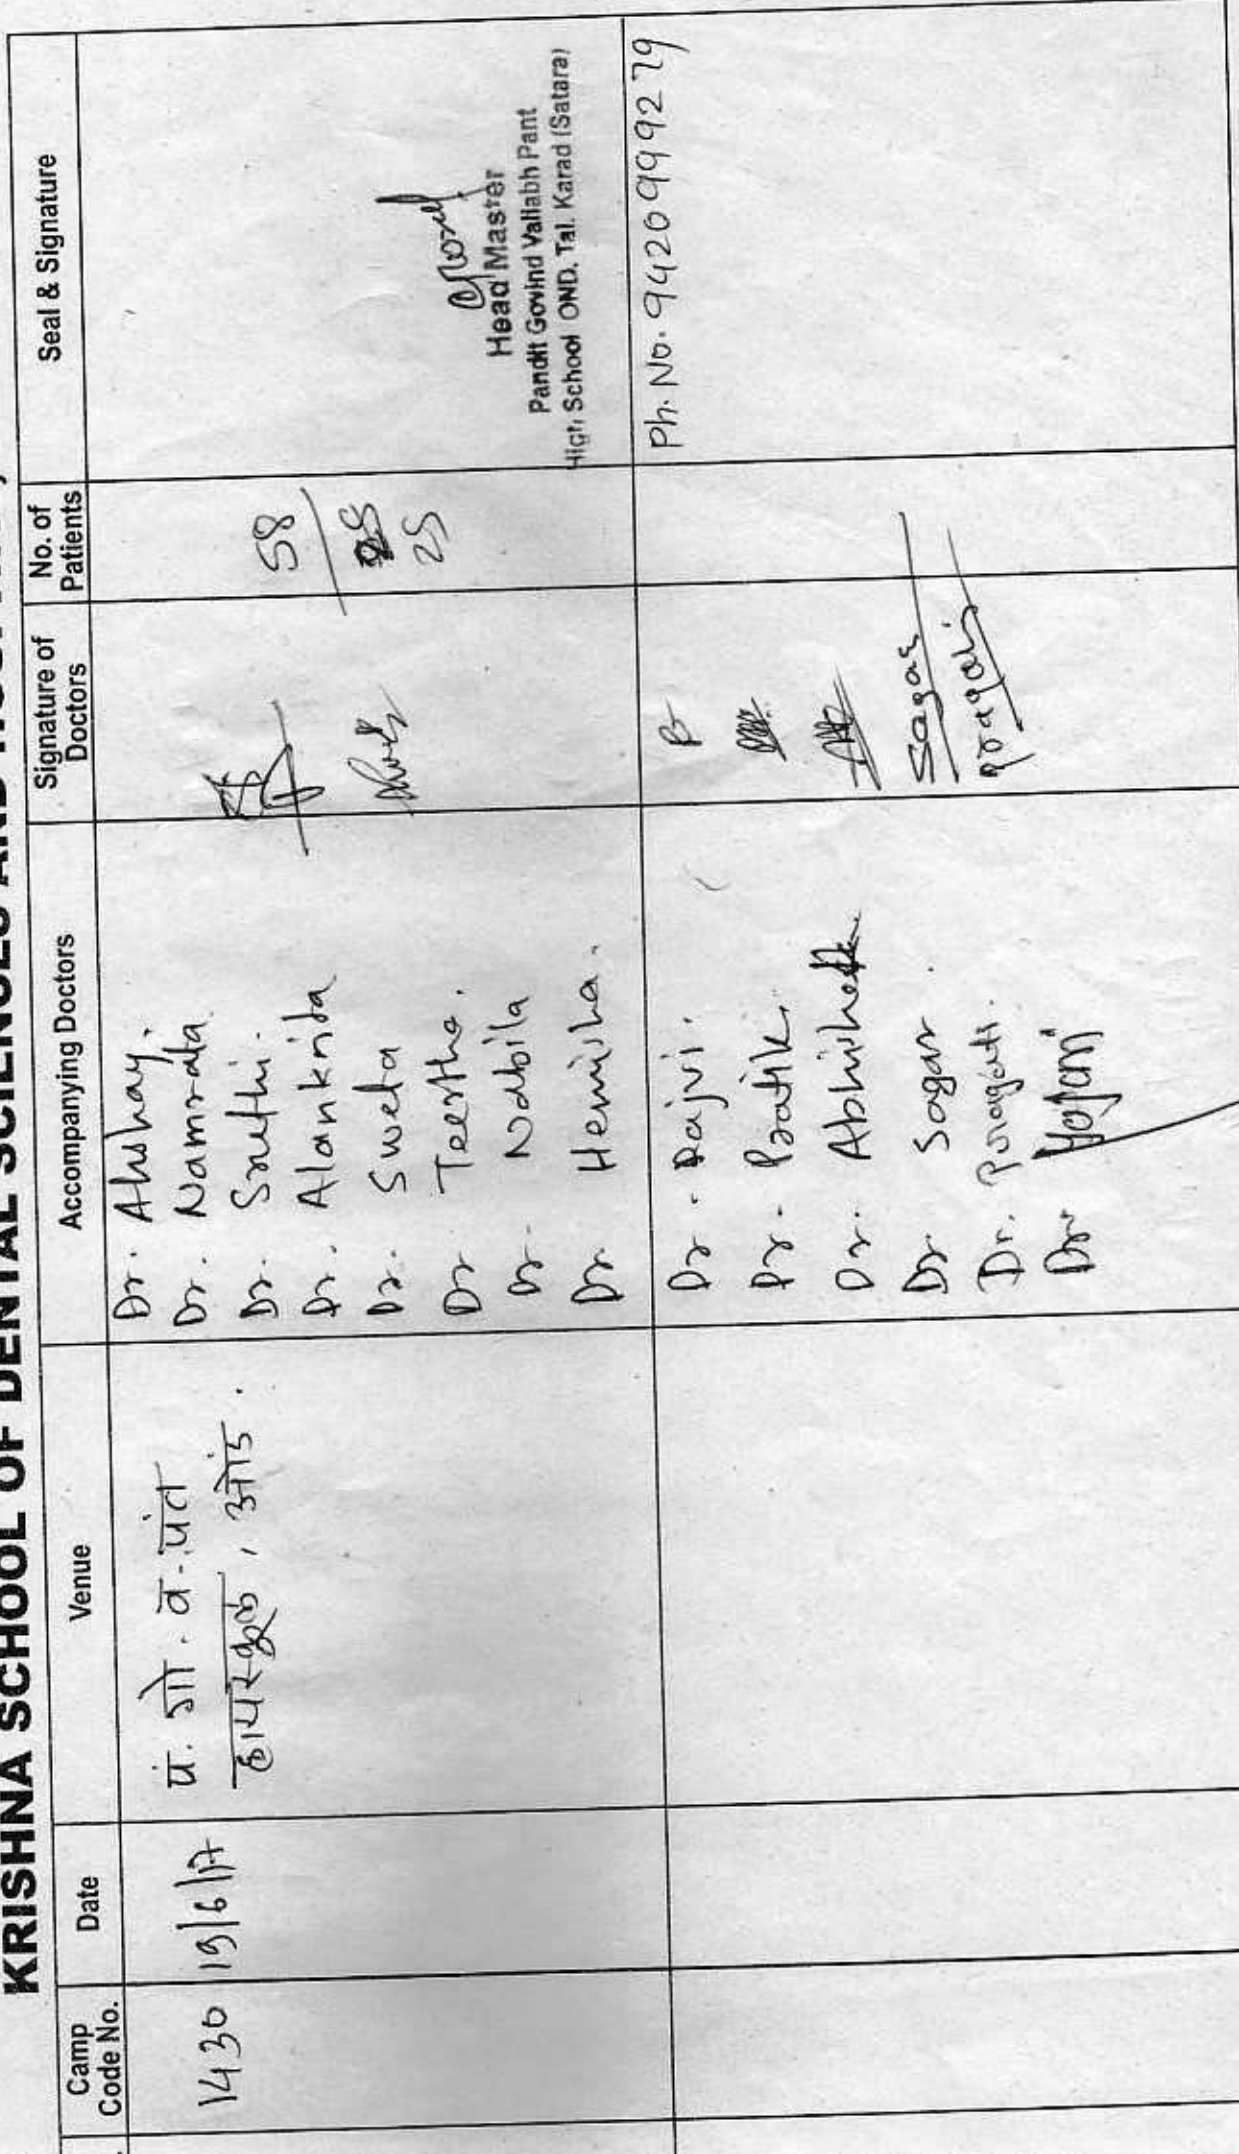 KRISHNA SCHOOL OF DENTAL SCIENCES AND
Camp Code No.
Date
Venue
Accompanying Doctors
Signature of Doctors
No. of Patients
Seal & Signature
1430
19/6/17
पं. गो. व. पंत
हायस्कूल, ओंड.
Dr. Akshay.
Dr. Namrata
Dr. Sruthi.
Dr. Alanknita
Dr. Sweta
Dr Teertha.
Dr. Nabila
Dr Hemisha.
58
25
Head Master
Pandit Govind Vallabh Pant
High School OND. Tal. Karad (Satara)
Dr. Rajvi.
Dr. Pratik.
Dr. Abhishek
Dr Sagar.
Dr. Pragati.
Dr
Sagar
Pragati
Ph. No. 9420999279